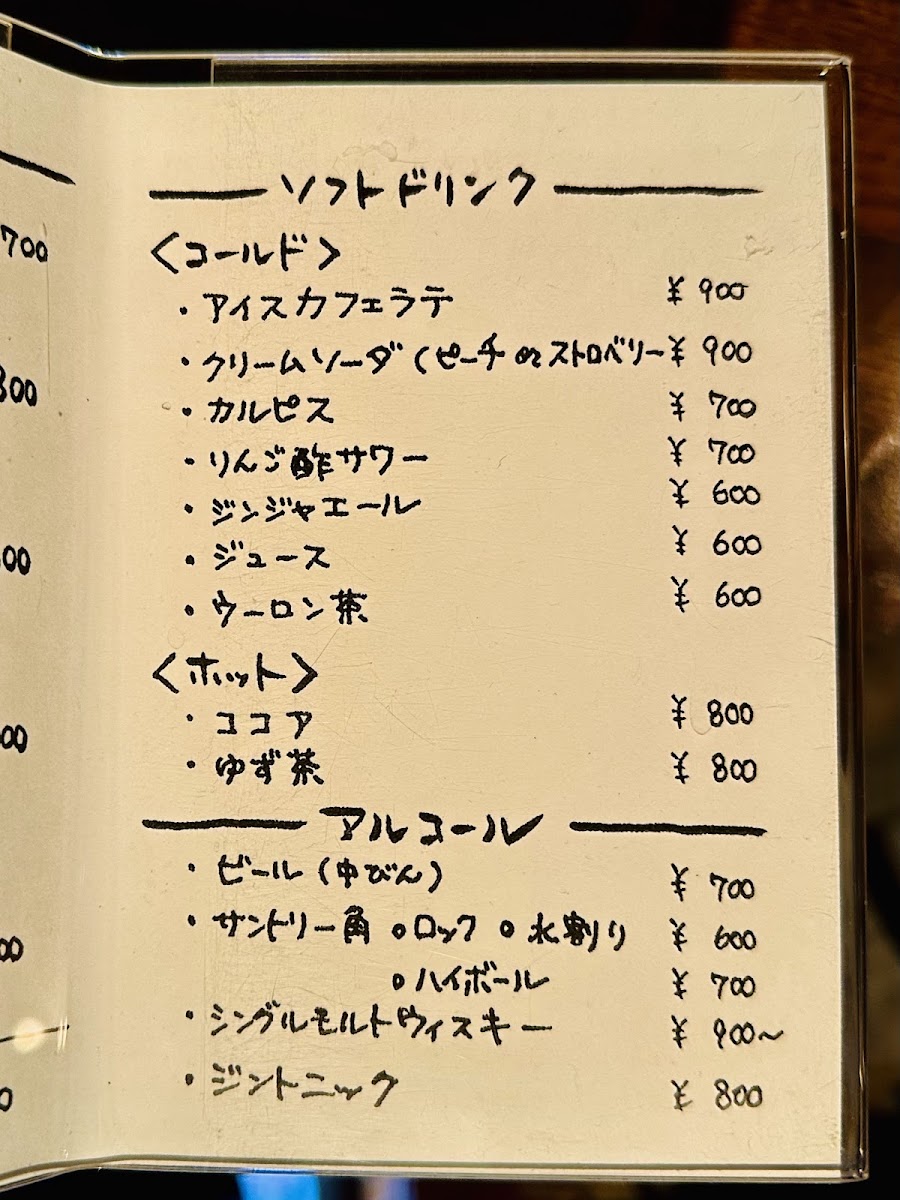 ソフトドリンク
<コールド>
・アイスカフェラテ ¥900
・クリームソーダ(ピーチ orストロベリー ¥900
・カルピス ¥700
・りんご酢サワー ¥700
・ジンジャエール ¥600
・ジュース ¥600
・ウーロン茶 ¥600
<ホット>
・ココア ¥800
・ゆず茶 ¥800
アルコール
・ビール(中びん) ¥700
・サントリー角 ○ロック ○水割り ¥600
○ハイボール ¥700
・シングルモルトウィスキー ¥900~
・ジントニック ¥800
700